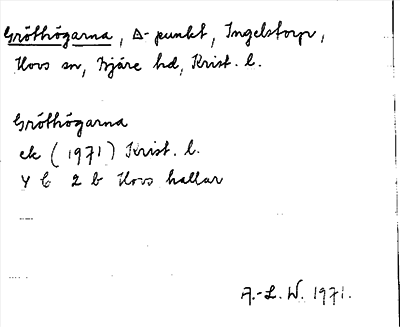 Gröthögarna, Δ-punkt, Ingelstorp,
Hovs sn, Bjäre hd, Krist. l.
Gröthögarna
ek (1971) Krist. l.
4 C 2 b Hovs hallar
A.-L. W. 1971.